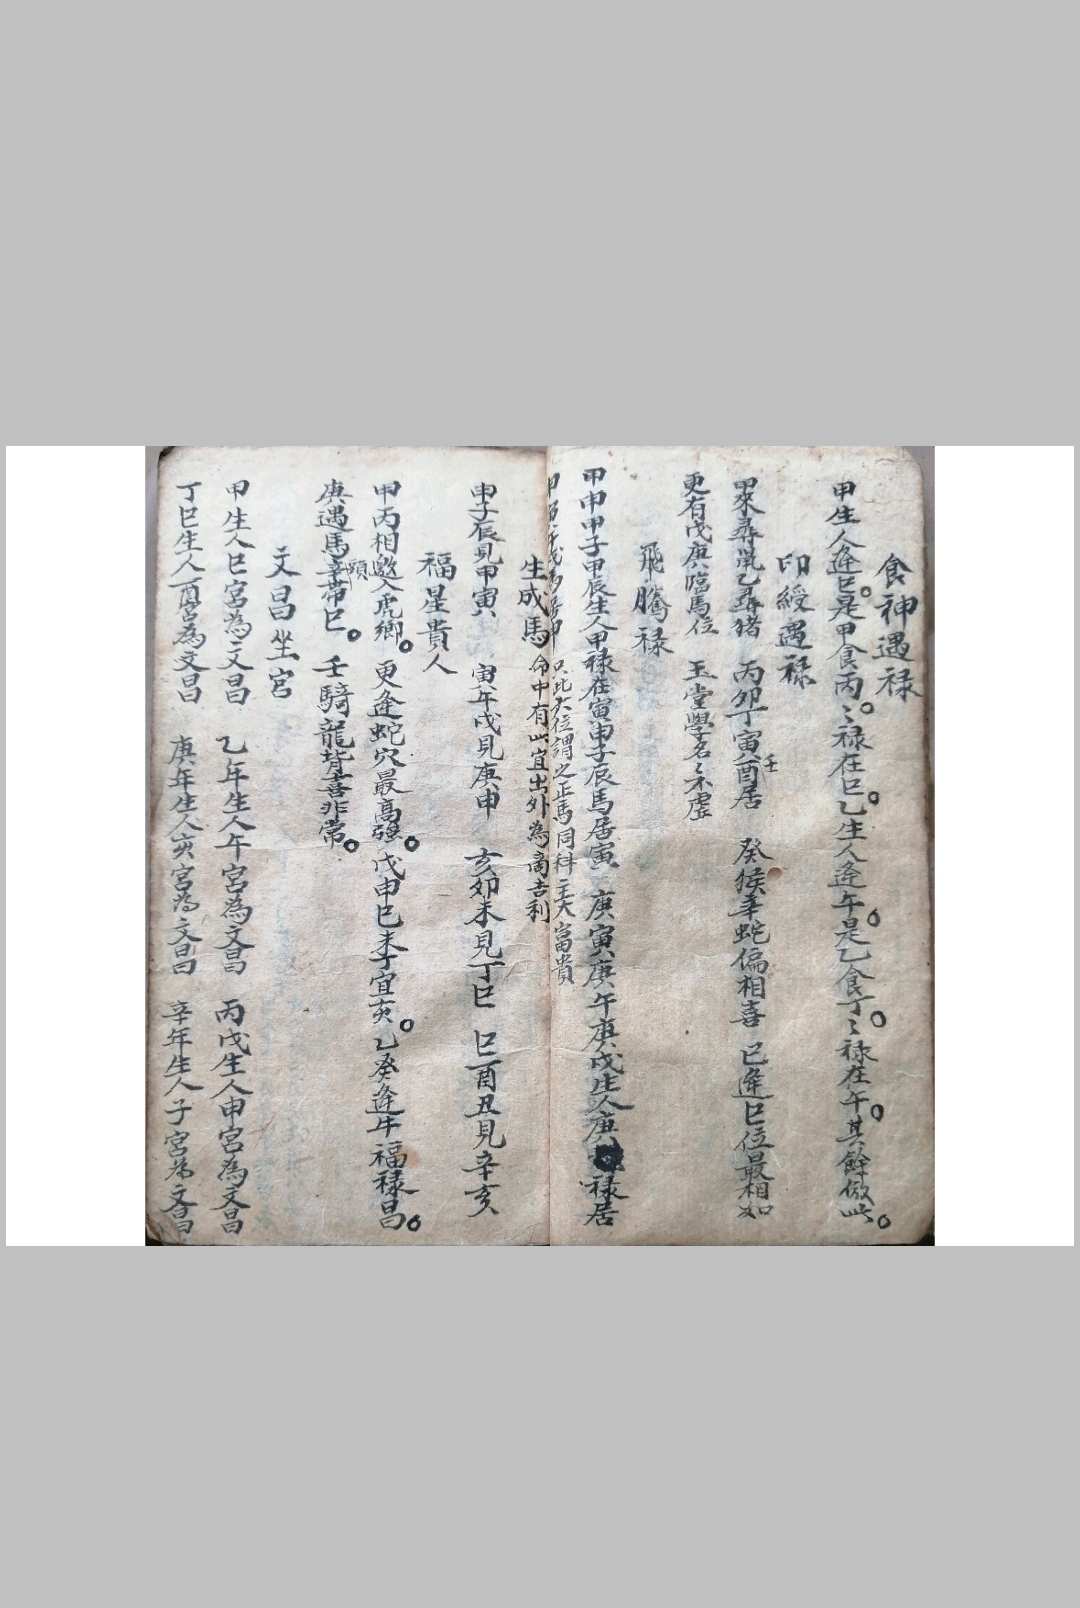 食神遇祿
甲生人逢巳是甲食丙〻祿在巳乙生人逢午是乙食丁〻祿在午其餘倣此
印綬遇祿
甲來尋鼠乙尋猪 丙卯丁寅壬酉居 癸猴辛蛇偏相喜 已逢巳位最相如
更有戊庚臨馬位 玉堂學名〻不虛
飛騰祿
甲申甲子甲辰生人甲祿在寅申子辰馬居寅 庚寅庚午庚戌生人庚祿居
申寅午戌馬居申 只此六位謂之正馬同科主大富貴
生成馬 命中有此宜出外為商吉利
申子辰見甲寅 寅午戌見庚申 亥卯未見丁巳 巳酉丑見辛亥
福星貴人
甲丙相邀入虎鄉 更逢蛇穴最高強 戊申己未丁宜亥 乙癸逢牛福祿昌
庚遇馬頭辛帶巳 壬騎龍背喜非常
文昌坐宮
甲生人巳宮為文昌 乙年生人午宮為文昌 丙戊生人申宮為文昌
丁巳生人酉宮為文昌 庚年生人亥宮為文昌 辛年生人子宮為文昌